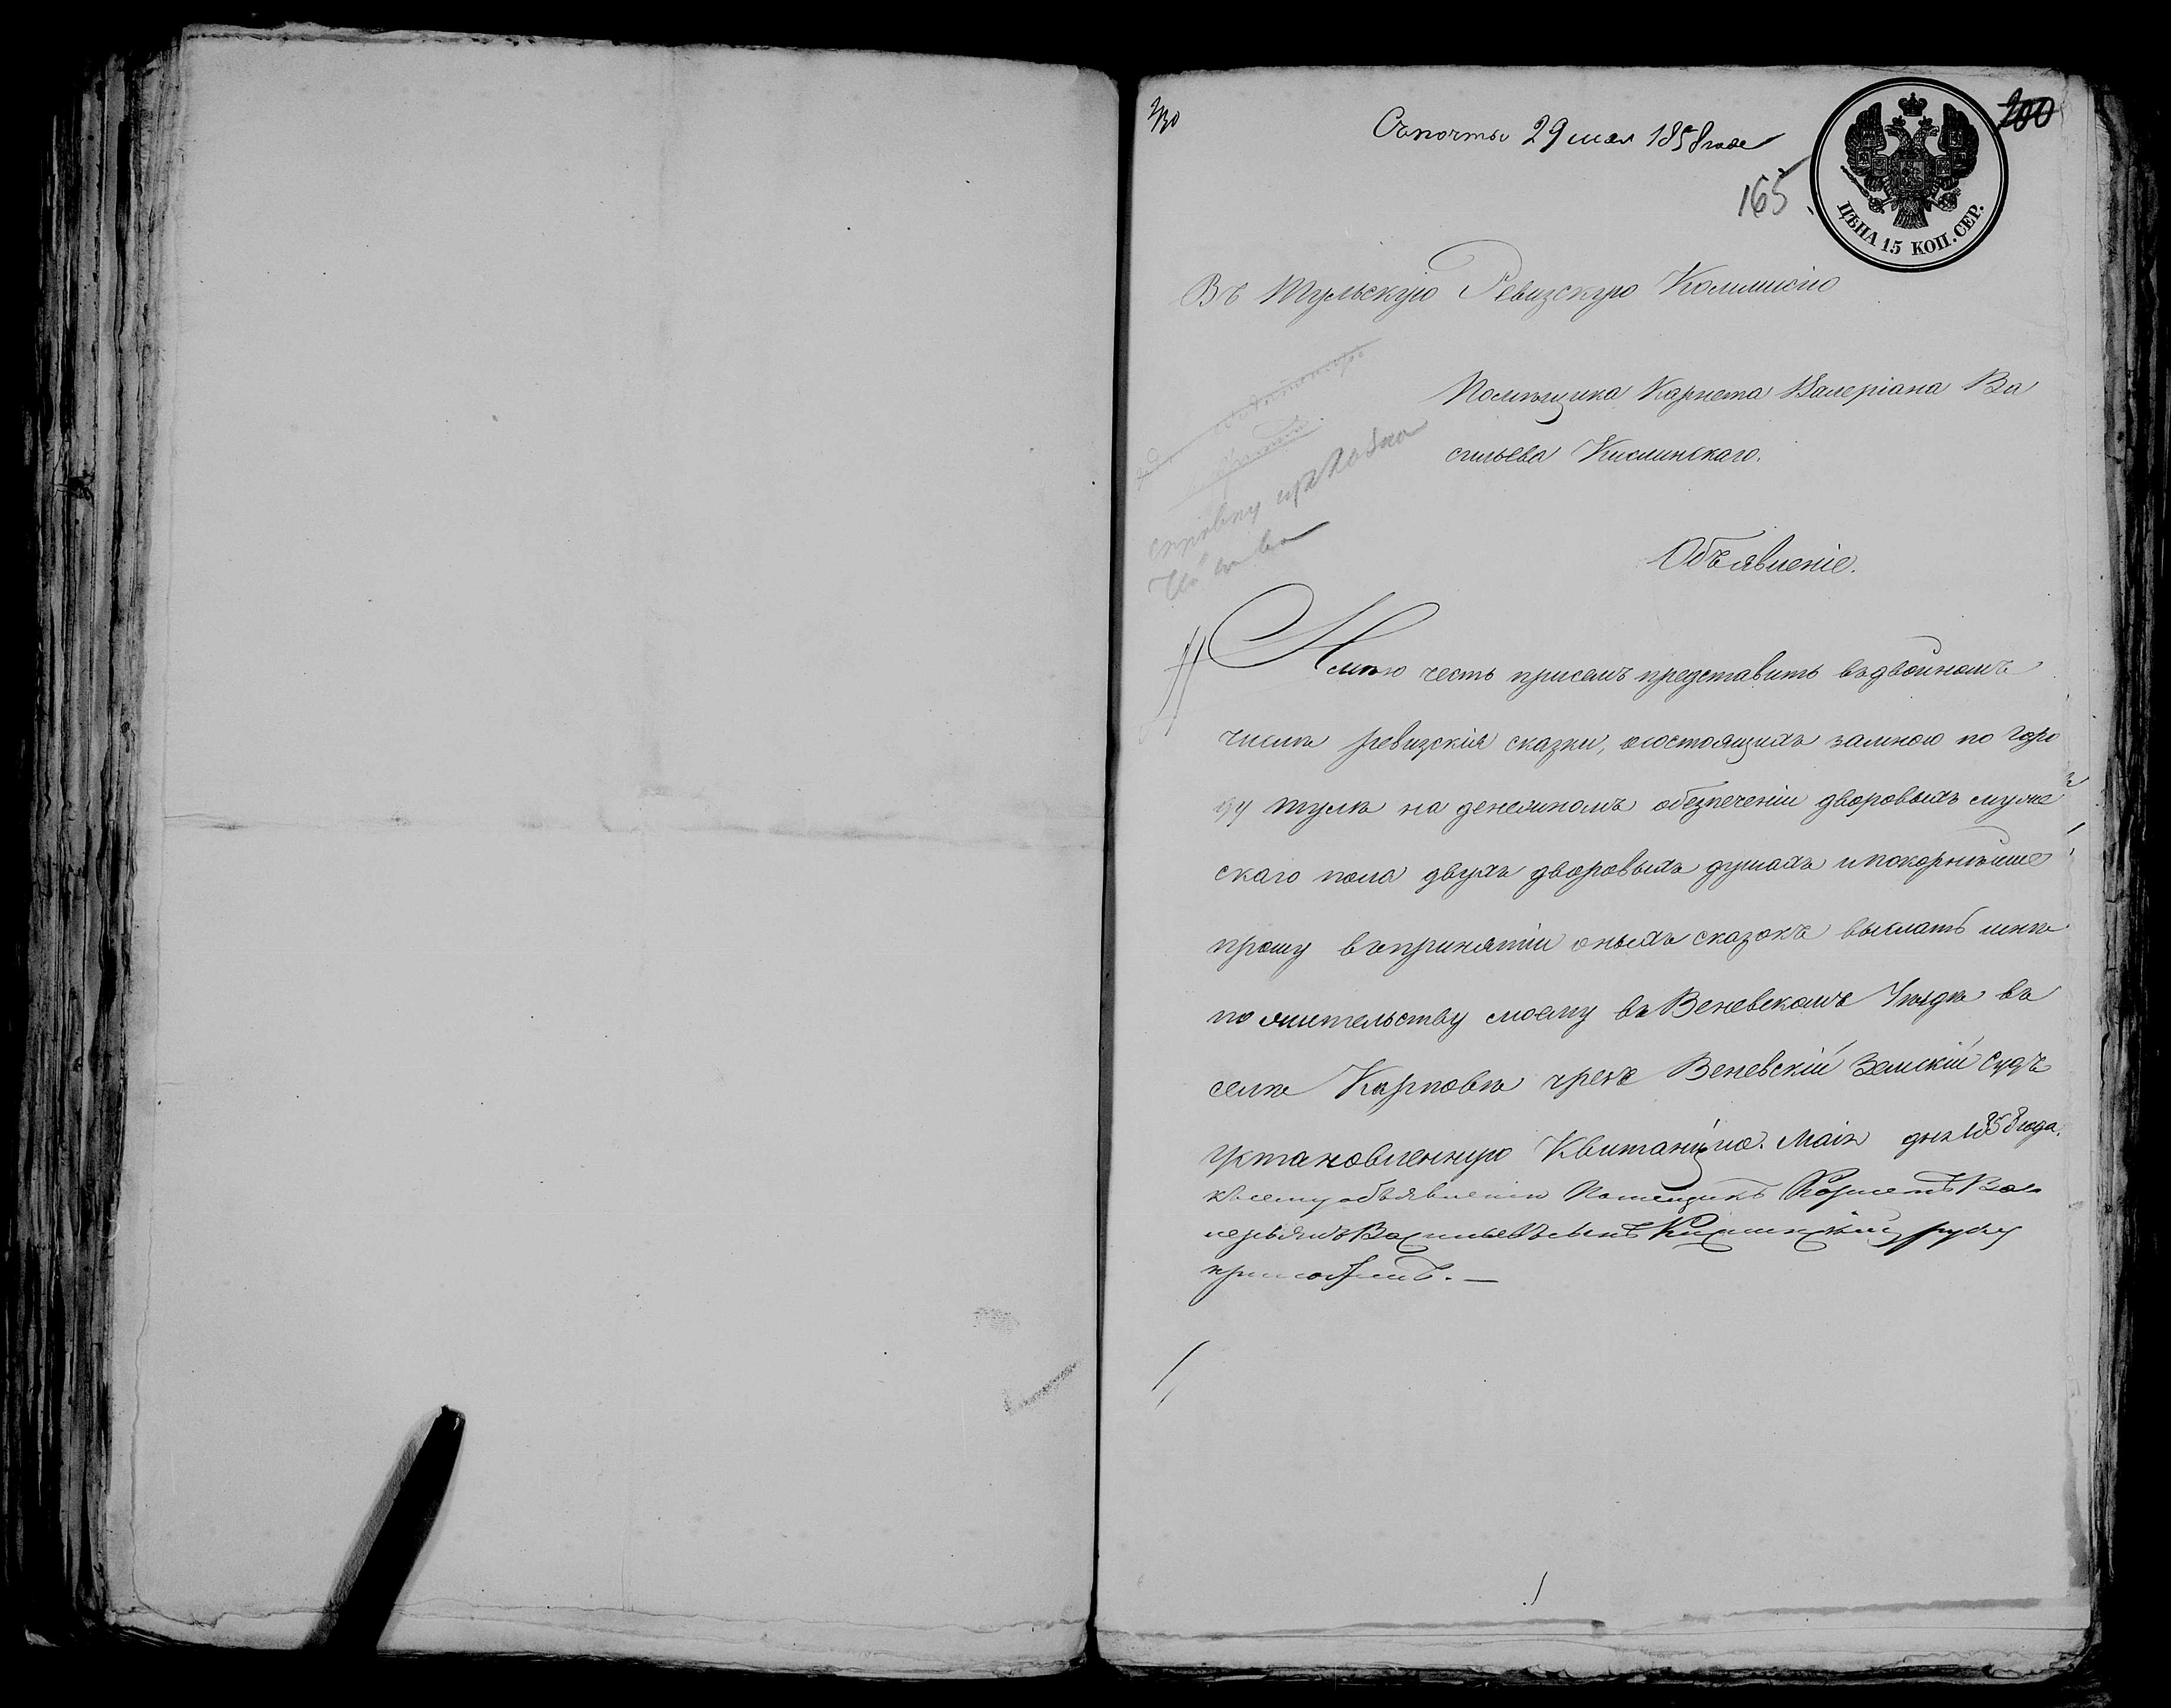 230
Съ почты 29 мая 1858 года
200
165
ЦѢНА 15 КОП. СЕР.
Въ Тульскую Ревизскую Коммисію
Помѣщика Карнета Валеріана Ва
сильева Кислинскаго.
справку
Объявленіе.
Имѣю честь присемъ представить въ двойномъ
числѣ ревизскія сказки, осостоящихъ замною по горо
ду Тулѣ на денежномъ обезпеченіи дворовыхъ мужe
скаго пола двухъ дворовыхъ душахъ и покорнѣйше
прошу въ принятіи оныхъ сказокъ выслать мнѣ
по жительству моему въ Веневскомъ Уѣздѣ въ
селѣ Карповѣ чрезъ Веневскій Земскій Судъ
установленную Квитанцію. Маія дня 1858 года.
къ сему объявленію Помещикъ Корнетъ Ва
лерьянъ Васильевъ сынъ Кислинскій руку
приложилъ.—